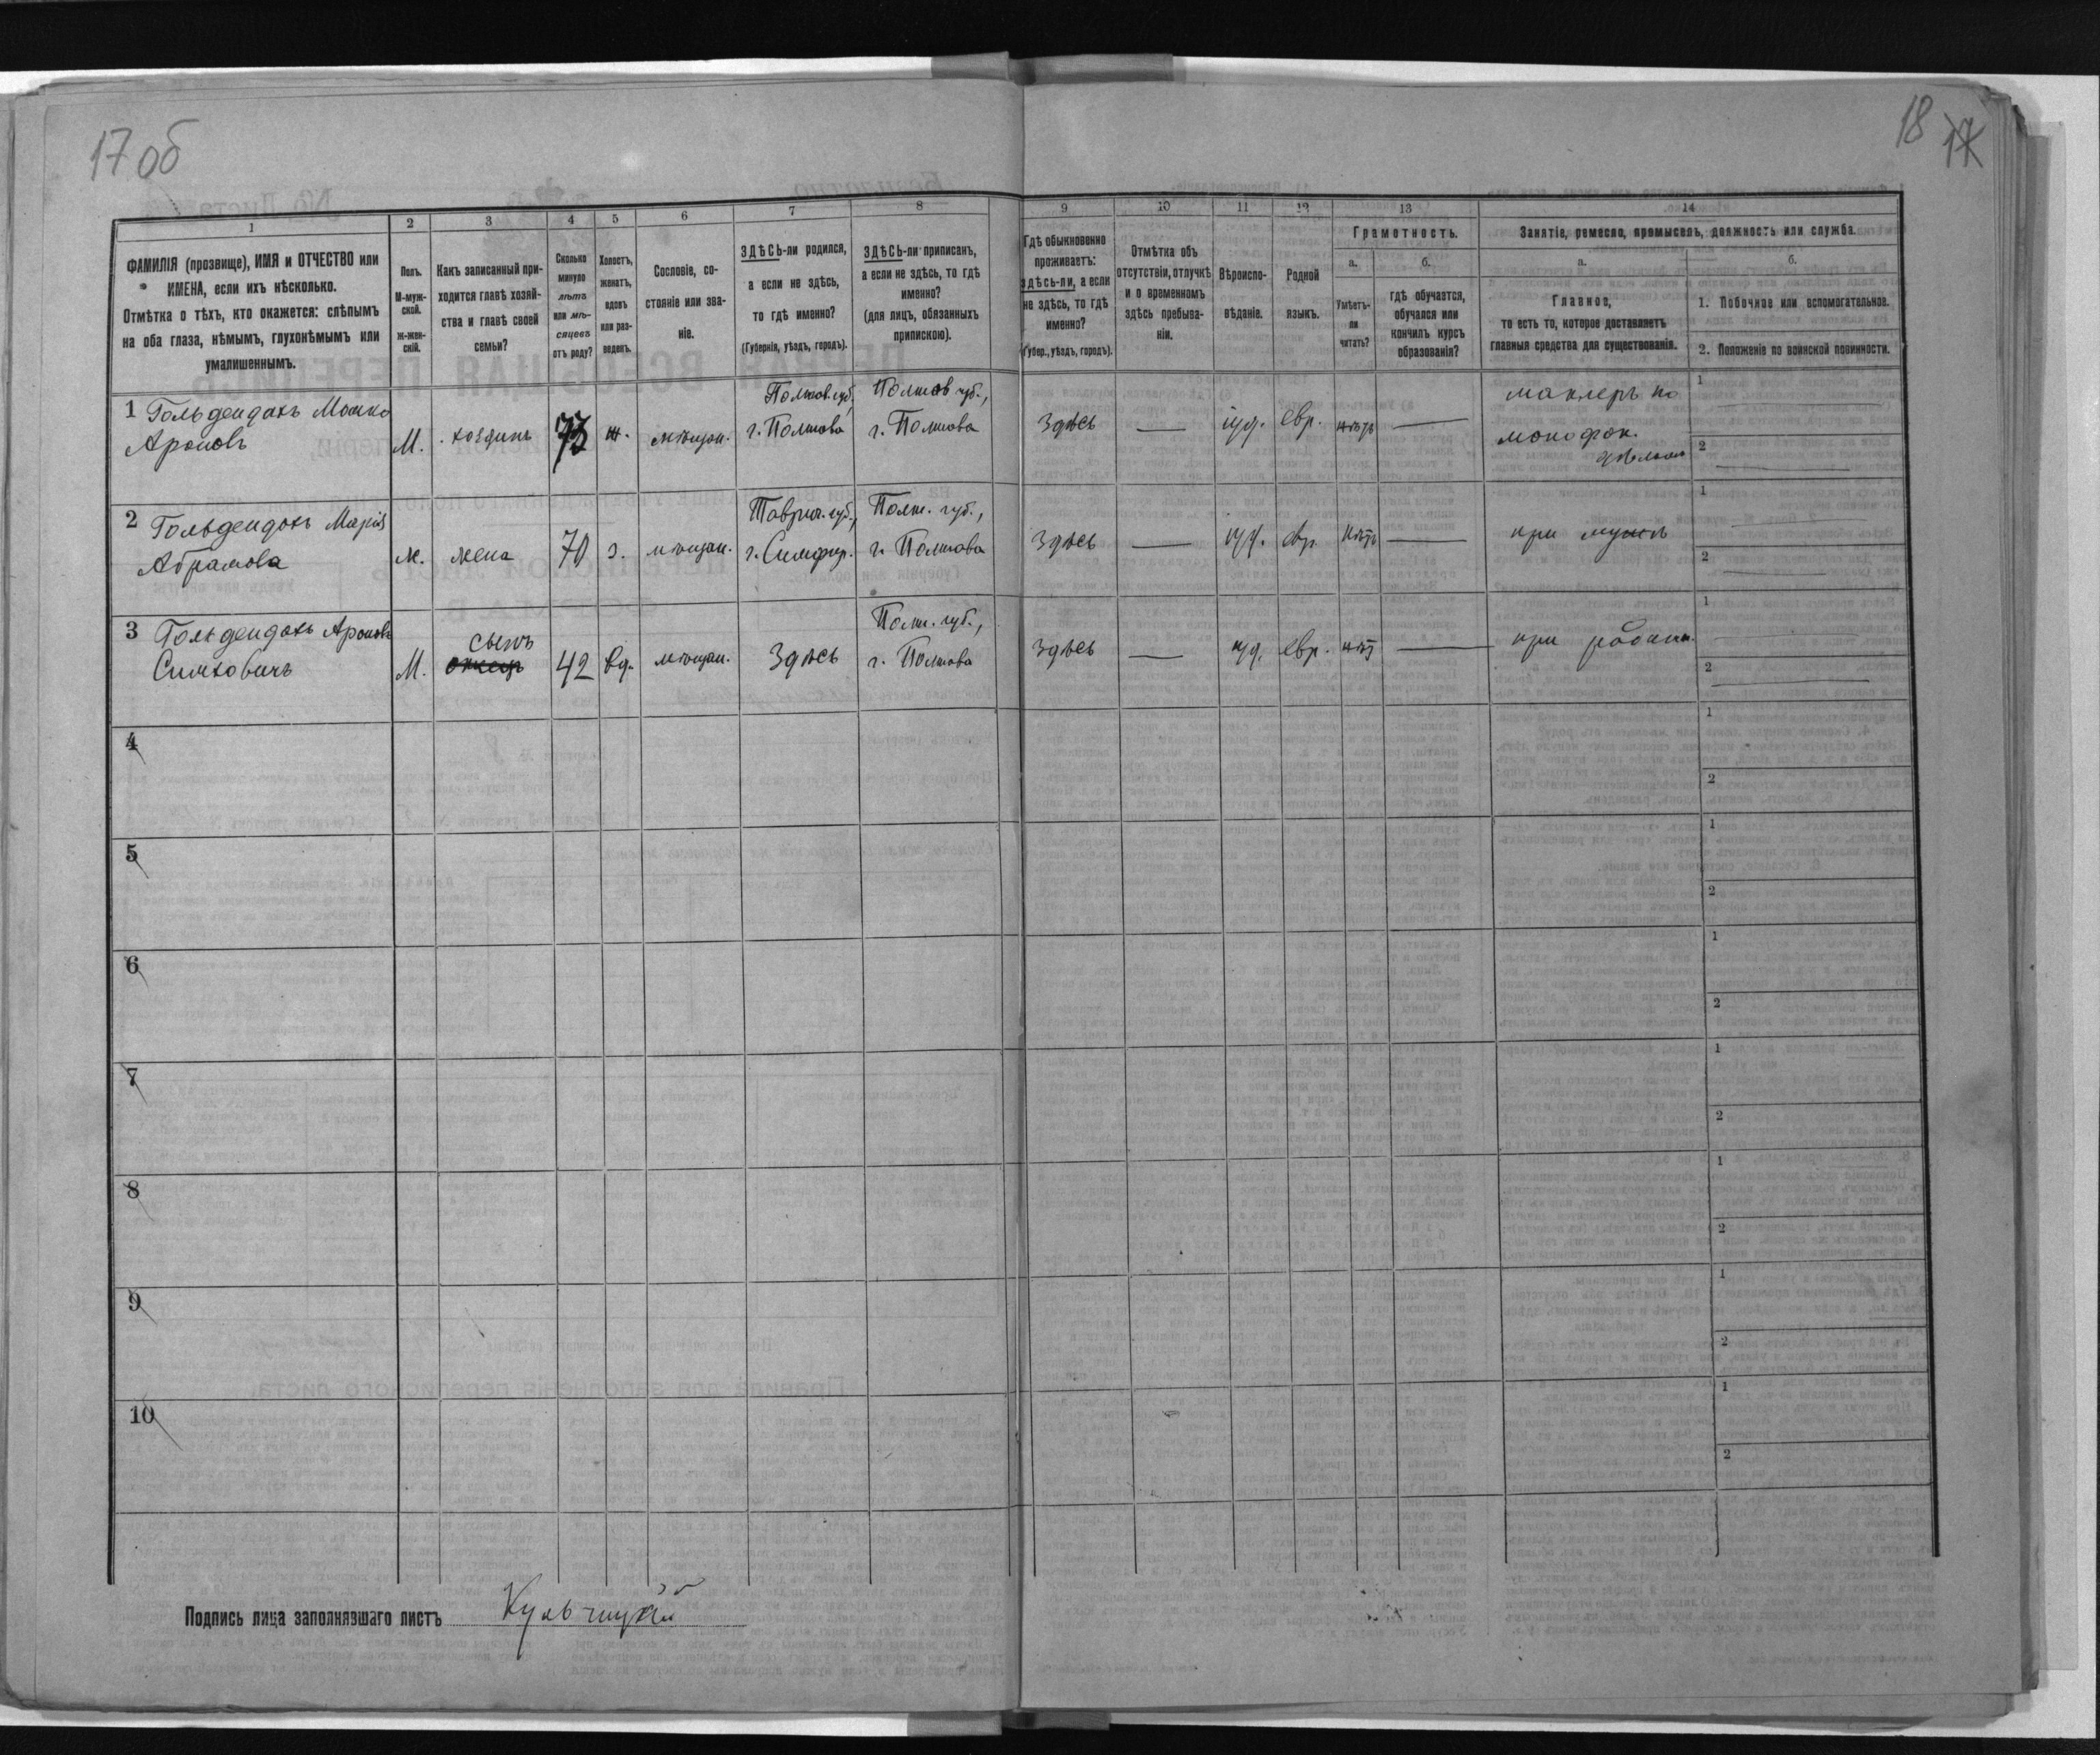 17 об
18 17
1 2 3 4 5 6 7 8 9 10 11 12 13 14
ФАМИЛІЯ (прозвище), ИМЯ и ОТЧЕСТВО или
ИМЕНА, если ихъ нѣсколько.
Отмѣтка о тѣхъ, кто окажется: слѣпымъ
на оба глаза, нѣмымъ, глухонѣмымъ или
умалишеннымъ.
Полъ.
М-муж-
ской.
ж-жен-
скій.
Какъ записанный при-
ходится главѣ хозяй-
ства и главѣ своей
семьи?
Сколько
минуло
лѣтъ
или мѣ-
сяцевъ
отъ роду?
Холостъ,
женатъ,
вдовъ
или раз-
веденъ.
Сословіе, со-
стояніе или зва-
ніе.
ЗДѢСЬ-ли родился,
а если не здѣсь,
то гдѣ именно?
(Губернія, уѣздъ, городъ).
ЗДѢСЬ-ли приписанъ,
а если не здѣсь, то гдѣ
именно?
(для лицъ, обязанныхъ
припискою).
Гдѣ обыкновенно
проживаетъ:
здѣсь-ли, а если
не здѣсь, то гдѣ
именно?
(Губер., уѣздъ, городъ).
Отмѣтка объ
отсутствіи, отлучкѣ
и о временномъ
здѣсь пребыва-
ніи.
Вѣроиспо-
вѣданіе.
Родной
языкъ.
Грамотность.
а.
Умѣетъ-
ли
читать?
б.
гдѣ обучается,
обучался или
кончилъ курсъ
образованія?
Занятіе, ремесло, промыселъ, должность или служба.
а.
Главное,
то есть то, которое доставляетъ
главныя средства для существованія.
б.
1. Побочное или вспомогательное.
2. Положеніе по воинской повинности.
1 Гольдендахъ Мошко
Ароновъ
М.
хозяинъ
73
ж.
мѣщан.
Полтав. губ.,
г. Полтава
Полтав губ.,
г. Полтава
Здѣсь
іуд.
евр.
нѣтъ
маклеръ по
1
2
2 Гольдендахъ Марія
Абрамова
ж.
жена
70
з.
мѣщан.
Таврич. губ.,
г. Симфер.
Полт. губ.,
г. Полтава
Здѣсь
іуд.
евр.
нѣтъ
при мужѣ
1
2
3 Гольдендахъ Ароновъ
Симховичъ
М.
сынъ
42
вд.
мѣщан.
Здѣсь
Полт. губ.,
г. Полтава
Здѣсь
іуд.
евр.
нѣтъ
при родит.
1
2
4
1
2
5
1
2
6
1
2
7
1
2
8
1
2
9
1
2
10
1
2
Подпись лица заполнявшаго листъ